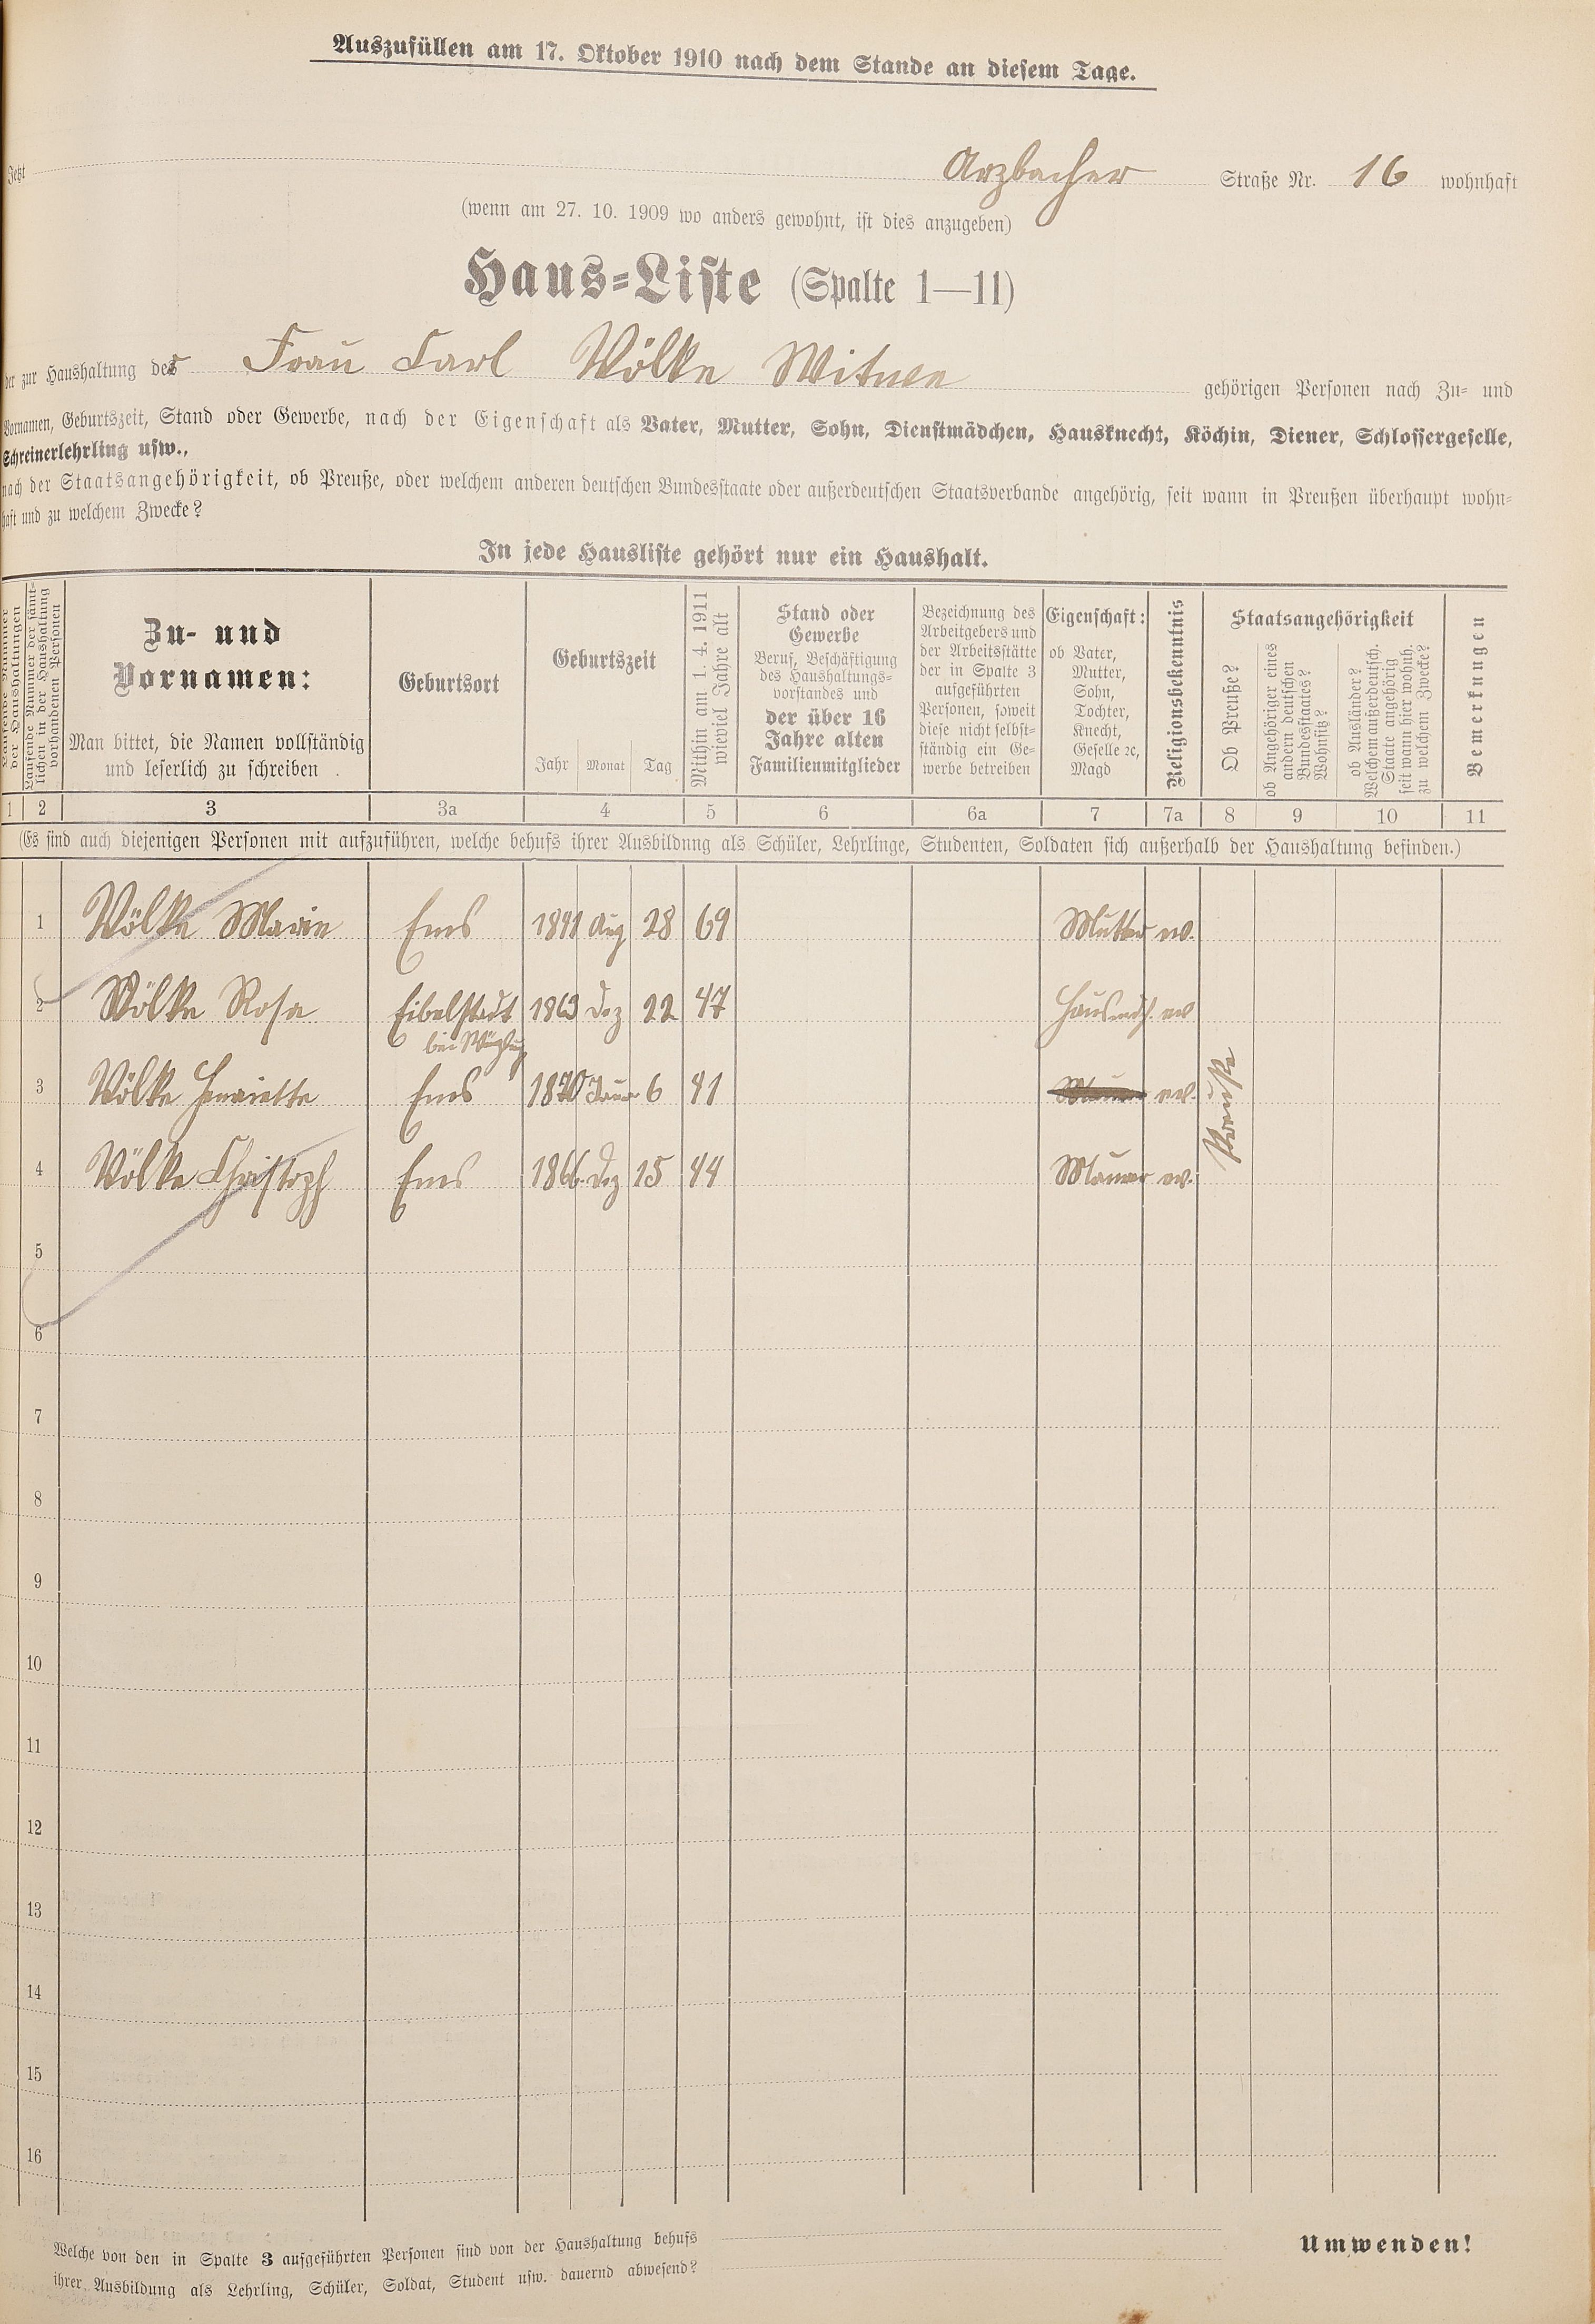 Auszufüllen am 17. Oktober 1910 nach dem Stande an diesem Tage.
Jetzt Arzbacher Straße Nr. 16 wohnhaft
(wenn am 27. 10. 1909 wo anders gewohnt, ist dies anzugeben)
Haus-Liste (Spalte 1—11)
der zur Haushaltung der Frau Carl Völke Witwe gehörigen Personen nach Zu- und
Vornamen, Geburtszeit, Stand oder Gewerbe, nach der Eigenschaft als Vater, Mutter, Sohn, Dienstmädchen, Hausknecht, Köchin, Diener, Schlossergeselle,
Schreinerlehrling usw.,
nach der Staatsangehörigkeit, ob Preuße, oder welchem anderen deutschen Bundesstaate oder außerdeutschen Staatsverbande angehörig, seit wann in Preußen überhaupt wohn-
haft und zu welchem Zwecke?
In jede Hausliste gehört nur ein Haushalt.
Laufende Nummer
der Haushaltungen
Laufende Nummer der sämt-
lichen in der Haushaltung
vorhandenen Personen
Zu- und
Vornamen:
Man bittet, die Namen vollständig
und leserlich zu schreiben
Geburtsort
Geburtszeit
Jahr Monat Tag
Mithin am 1. 4. 1911
wieviel Jahre alt
Stand oder
Gewerbe
Beruf, Beschäftigung
des Haushaltungs-
vorstandes und
der über 16
Jahre alten
Familienmitglieder
Bezeichnung des
Arbeitgebers und
der Arbeitsstätte
der in Spalte 3
aufgeführten
Personen, soweit
diese nicht selbst-
ständig ein Ge-
werbe betreiben
Eigenschaft:
ob Vater,
Mutter,
Sohn,
Tochter,
Knecht,
Geselle ꝛc,
Magd
Religionsbekenntnis
Staatsangehörigkeit
Ob Preuße?
ob Angehöriger eines
andern deutschen
Bundesstaates?
Wohnsitz?
ob Ausländer?
Welchem außerdeutsch.
Staate angehörig
seit wann hier wohnh.
zu welchem Zwecke?
Bemerkungen
1 2 3 3a 4 5 6 6a 7 7a 8 9 10 11
(Es sind auch diejenigen Personen mit aufzuführen, welche behufs ihrer Ausbildung als Schüler, Lehrlinge, Studenten, Soldaten sich außerhalb der Haushaltung befinden.)
1 Völke Marie Ems 1841 Aug 28 69 Mutter ev.
2 Völke Rosa Eibelstadt 1863 Dez 22 47 ev
bei Würzburg
3 Völke Henriette Ems 1870 Januar 6 41 ev.
Preuße
4 Völke Christoph Ems 1866. Dez 15 44 Maurer ev.
5
6
7
8
9
10
11
12
13
14
15
16
Welche von den in Spalte 3 aufgeführten Personen sind von der Haushaltung behufs
ihrer Ausbildung als Lehrling, Schüler, Soldat, Student usw. dauernd abwesend?
Umwenden!